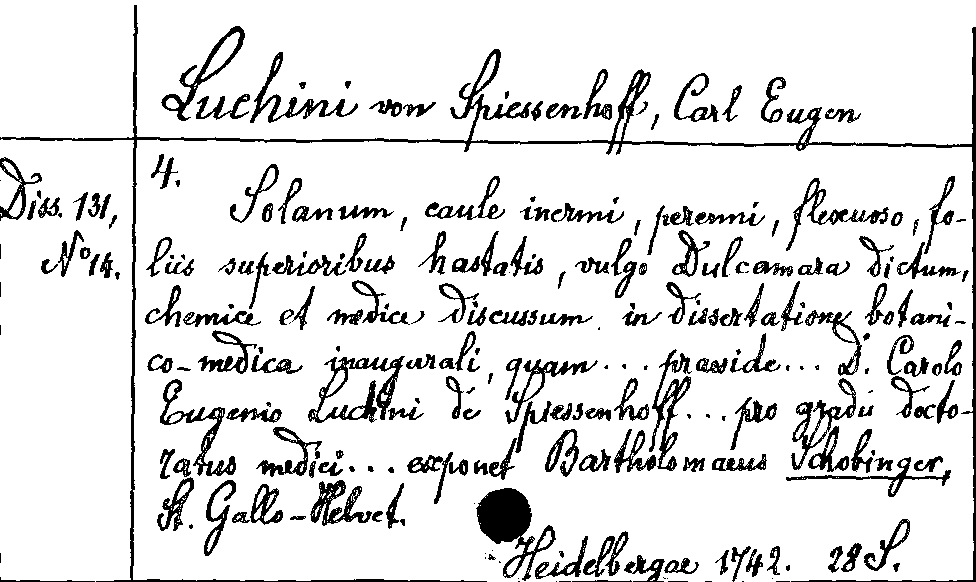 Luchini von Spiessenhoff, Carl Eugen
4.
Diss. 131,
No 14.
Solanum, caule inermi, perenni, flexuoso, fo-
liis superioribus hastatis, vulgo Dulcamara dictum,
chemice et medice discussum in dissertatione botani-
co-medica inaugurali, quam... praeside... D. Carolo
Eugenio Luchini de Spiessenhoff... pro gradu docto-
ratus medici... exponet Bartholomaeus Schobinger,
St. Gallo-Helvet.
Heidelbergae 1742. 28 S.